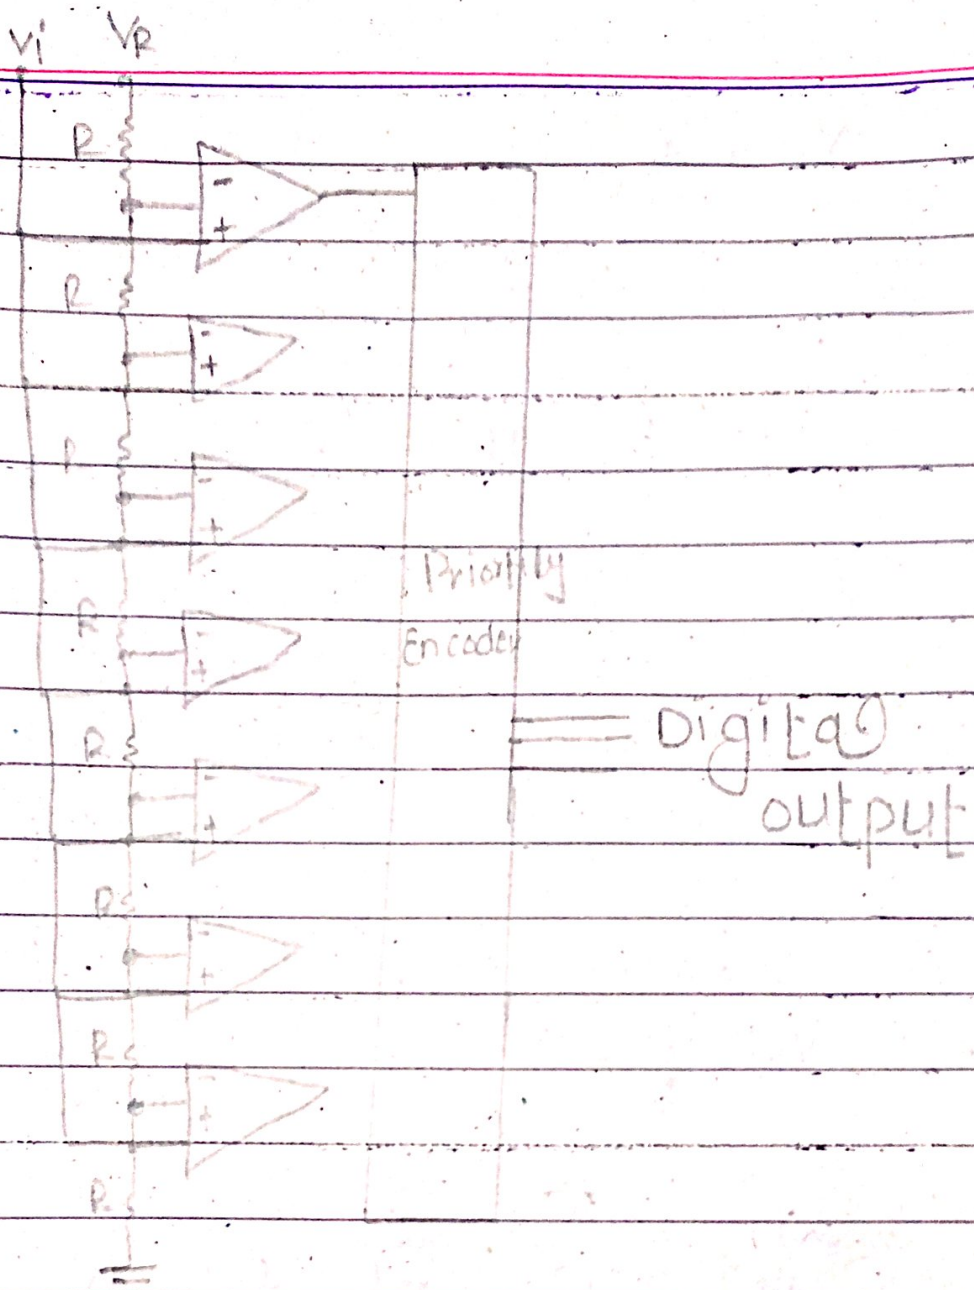 Vi VR
R
-
+
R
-
+
R
-
+
Priority
R
-
+
Encoder
R
Digital
-
output
+
R
-
+
R
-
+
R